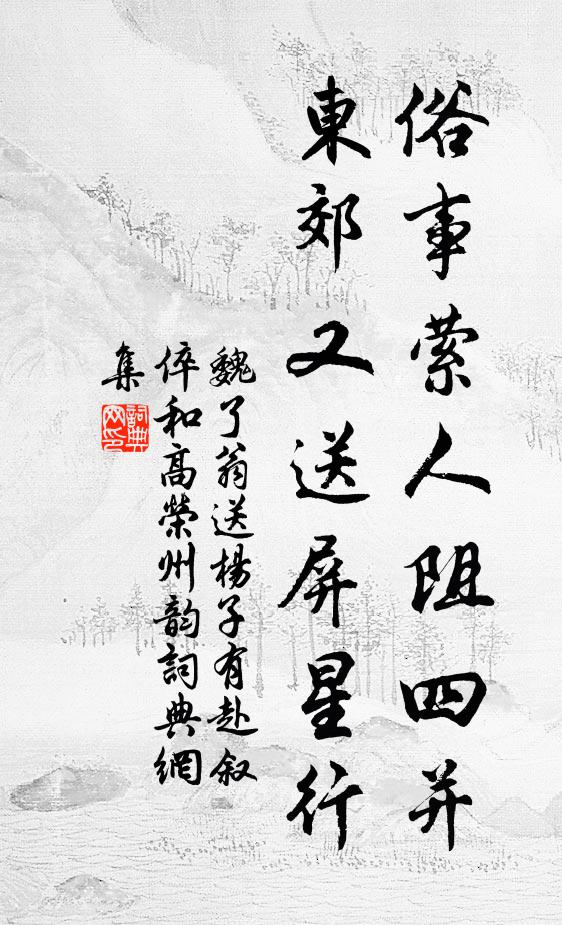 俗事萦人阻四并
東郊又送屏星行
魏了翁送楊子有赴叙
倅和高榮州韵詞典網
集
詞典网印